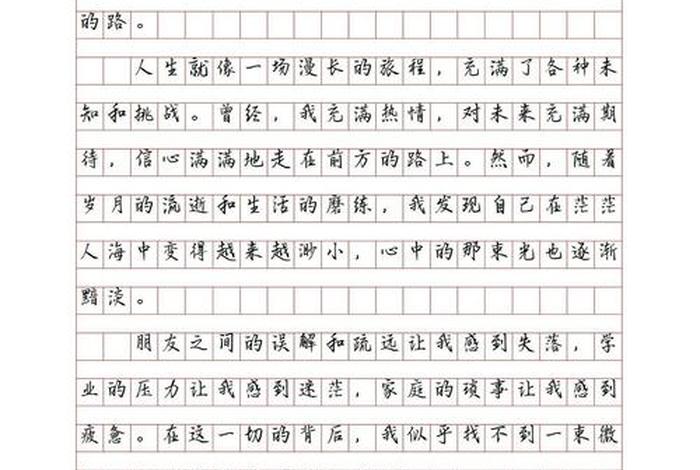 的路。
人生就像一场漫长的旅程，充满了各种未
知和挑战。曾经，我充满热情，对未来充满期
待，信心满满地走在前方的路上。然而，随着
岁月的流逝和生活的磨练，我发现自己在茫茫
人海中变得越来越渺小，心中的那束光也逐渐
黯淡。
朋友之间的误解和疏远让我感到失落，学
业的压力让我感到迷茫，家庭的琐事让我感到
疲惫。在这一切的背后，我似乎找不到一束微